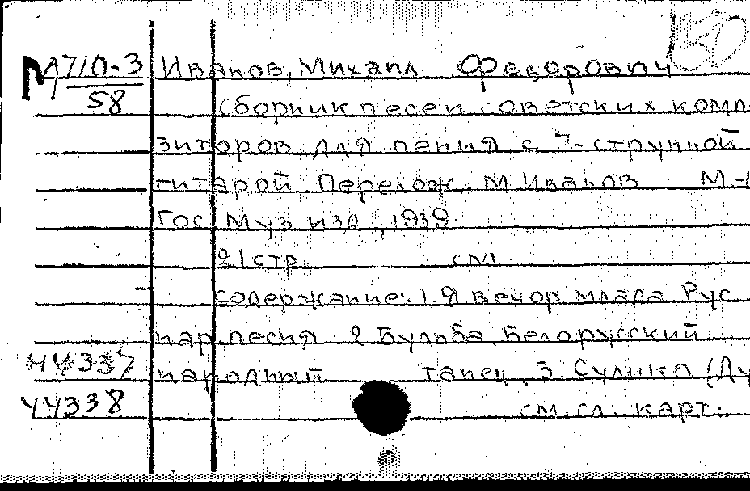 М710-3 Иванов, Михаил Федорович
58 Сборник песен советских комп
зиторов для пения с 7-струнной
гитарой. Перелож. М. Иванов М-
Гос. Муз. изд., 1939
21 стр.
Содержание: 1. Я вечор млада Рус.
нар. песня 2. Бульба. Белорусский
44337 народный танец. 3. Сулико (Ду
44338 см. сл. карт.